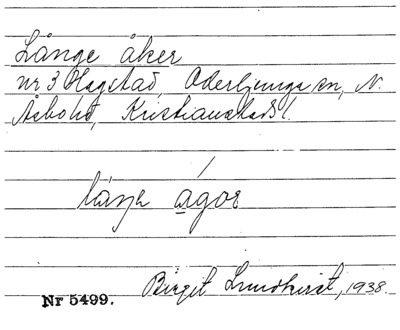 Långe åker
nr 3 Hagstad, Oderljunga sn, N.
Åsbohd, Kristianstads l.
långə ągor
Birgit Lundkvist, 1938.
Nr 5499.